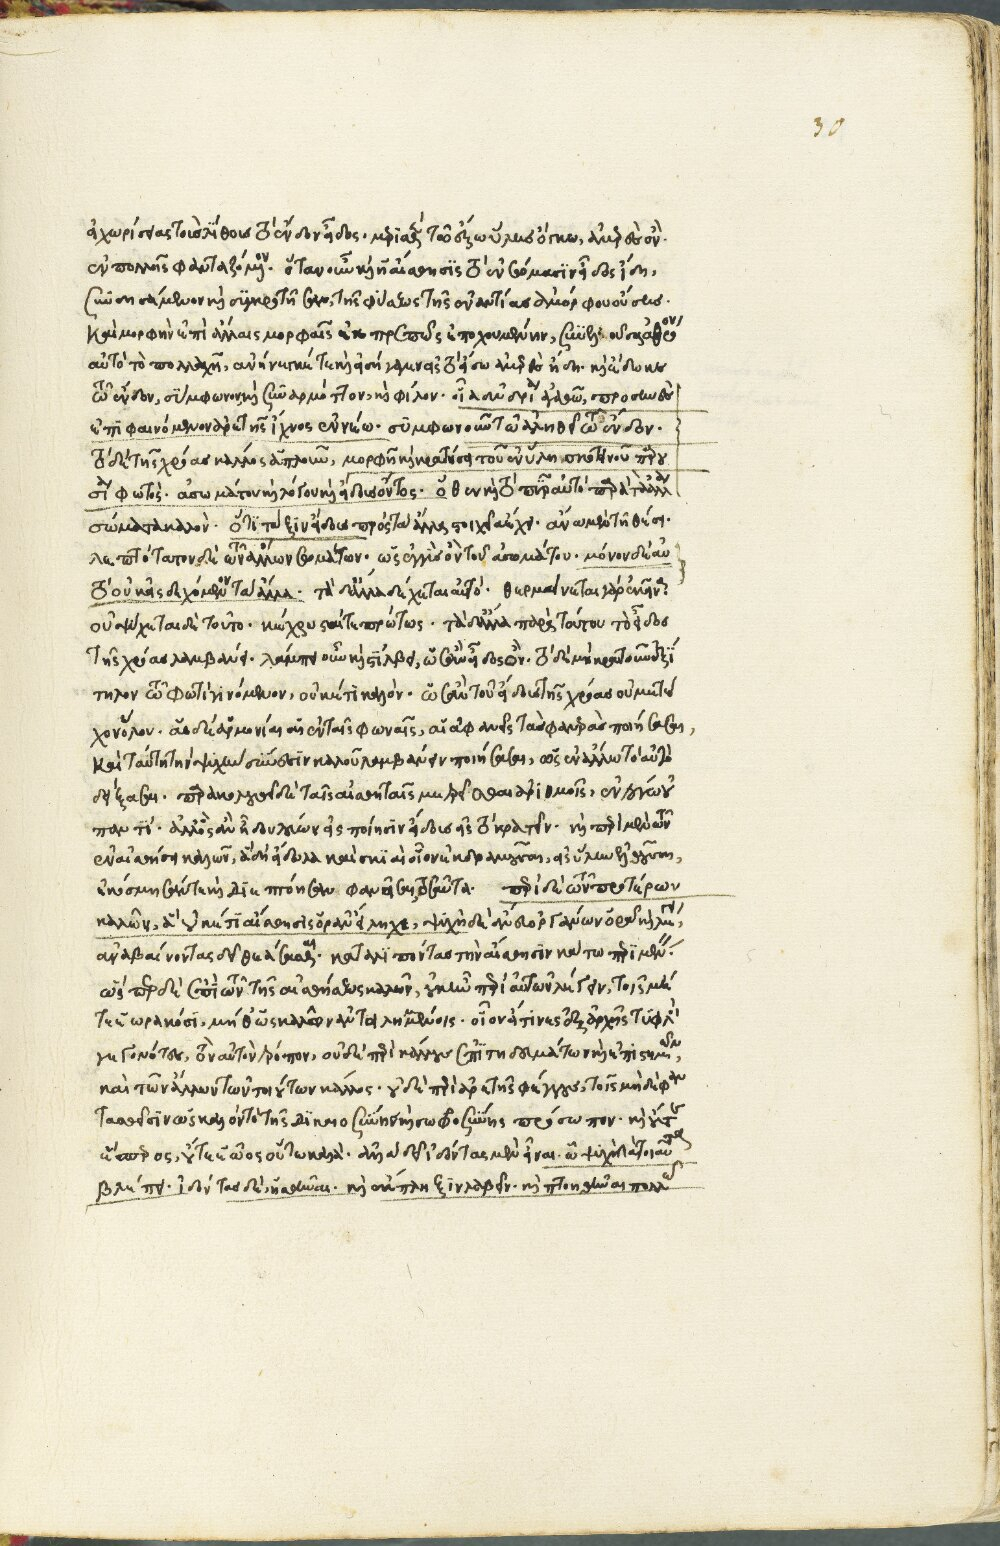 30
εἰ χωρίσειας τοὺς λίθους τὸ ἔνδον εἶδος· μερισθὲν τῶ ἔξω ὕλης ὄγκω, ἀμερὲς ὂν·
ἐν πολλοῖς φανταζόμενον· ὅταν οὖν καὶ ἡ αἴσθησις τὸ ἐν σώμασιν εἶδος ἴδη,
συνδησάμενον καὶ κρατῆσαν, τῆς φύσεως τῆς ἐναντίας ἀμόρφου οὔσης·
καὶ μορφὴν ἐπὶ ἄλλαις μορφαῖς ἐκπρεπῶς ἐποχουμένην, συνελοῦσα ἀθρόον
αὐτὸ τὸ πολλαχῆ, ἀνήνεγκέ τε καὶ εἰσήγαγεν εἰς τὸ εἴσω ἀμερὲς ἤδη· καὶ ἔδωκε
τῶ ἔνδον, σύμφωνον καὶ συναρμόττον, καὶ φίλον· οἷα ἀνδρὶ ἀγαθῶ, προσηνὲς
ἐπιφαινόμενον ἀρετῆς ἴχνος ἐν νέω· συμφωνοῦν τῶ ἀληθεῖ τῶ ἔνδον·
τὸ δὲ τῆς χρόας κάλλος ἁπλοῦν, μορφῆ καὶ κρατήσει τοῦ ἐν ὕλη σκοτεινοῦ παρου
σία φωτὸς· ἀσωμάτου καὶ λόγου καὶ εἴδους ὄντος· ὅθεν καὶ τὸ πῦρ αὐτὸ παρὰ τὰ ἄλλα
σώματα καλὸν· ὅτι τάξιν εἴδους πρὸς τὰ ἄλλα στοιχεῖα ἔχει· ἄνω μὲν τῆ θέσει·
λεπτότατον δὲ τῶν ἄλλων σωμάτων· ὡς ἐγγὺς ὂν τοῦ ἀσωμάτου· μόνον δὲ αὐ
τὸ οὐκ εἰσδεχόμενον τὰ ἄλλα· τὰ δ' ἄλλα δέχεται αὐτό· θερμαίνεται γὰρ ἐκεῖνα
οὐ ψύχεται δὲ τοῦτο· κέχρωσταί τε πρώτως· τὰ δ' ἄλλα παρὰ τούτου τὸ εἶδος
τῆς χρόας λαμβάνει· λάμπει οὖν καὶ στίλβει, ὡς ἂν εἶδος ὄν· τὸ δὲ μὴ κρατοῦν ἐξί
τηλον τῶ φωτὶ γινόμενον, οὐκέτι καλὸν· ὡς ἂν τοῦ εἴδους τῆς χρόας οὐ μετέ
χον ὅλου· αἱ δὲ ἁρμονίαι αἱ ἐν ταῖς φωναῖς, αἱ ἀφανεῖς τὰς φανερὰς ποιήσασαι,
καὶ ταύτη τὴν ψυχὴν σύνεσιν καλοῦ λαμβάνειν ποιήσασαι, ὡς ἐν ἄλλω τὸ αὐτὸ
δείξασαι· παρακολουθεῖ δὲ ταῖς αἰσθηταῖς μετρεῖσθαι ἀριθμοῖς, ἐν λόγω οὐ
παντί· ἀλλ' ὃς ἂν ἦ δουλεύων εἰς ποίησιν εἴδους εἰς τὸ κρατεῖν· καὶ περὶ μὲν τῶν
ἐν αἰσθήσει καλῶν, ἃ δὴ εἴδωλα καὶ σκιαὶ οἷον ἐκδραμοῦσαι, εἰς ὕλην ἐλθοῦσαι,
ἐκόσμησάν τε καὶ διεπτόησαν φανεῖσαι, τοσαῦτα· περὶ δὲ τῶν προσωτέρω
καλῶν, ἃ οὐκέτι αἴσθησις ὁρᾶν εἴληχε, ψυχὴ δὲ ἄνευ ὀργάνων ὁρᾶ καὶ λέγει,
ἀναβαίνοντας δεῖ θεάσασθαι· καταλιπόντας τὴν αἴσθησιν κάτω περιμένειν·
ὥσπερ δὲ ἐπὶ τῶν τῆς αἰσθήσεως καλῶν, οὐκ ἦν περὶ αὐτῶν λέγειν, τοῖς μή
τε ἑωρακόσι, μήθ' ὡς καλῶν ἀντειλημμένοις· οἷον εἴ τινες ἐξ ἀρχῆς τυφλοὶ
γεγονότες, τὸν αὐτὸν τρόπον, οὐδὲ περὶ κάλλους ἐπιτηδευμάτων καὶ ἐπιστημῶν,
καὶ τῶν ἄλλων τῶν τοιούτων κάλλος· οὐδὲ περὶ ἀρετῆς φέγγους, τοῖς μηδὲ φαν
τασθεῖσιν ὡς καλὸν τὸ τῆς δικαιοσύνης καὶ σωφροσύνης πρόσωπον· καὶ οὔτε
ἕσπερος, οὔτε ἑῶος οὕτω καλὰ· ἀλλὰ δεῖ ἰδόντας μὲν εἶναι· ὧ ψυχὴ τὰ τοιαῦτα
βλέπει· ἰδόντας δὲ, ἡσθῆναι· καὶ ἔκπληξιν λαβεῖν· καὶ πτοηθῆναι πολλῶ